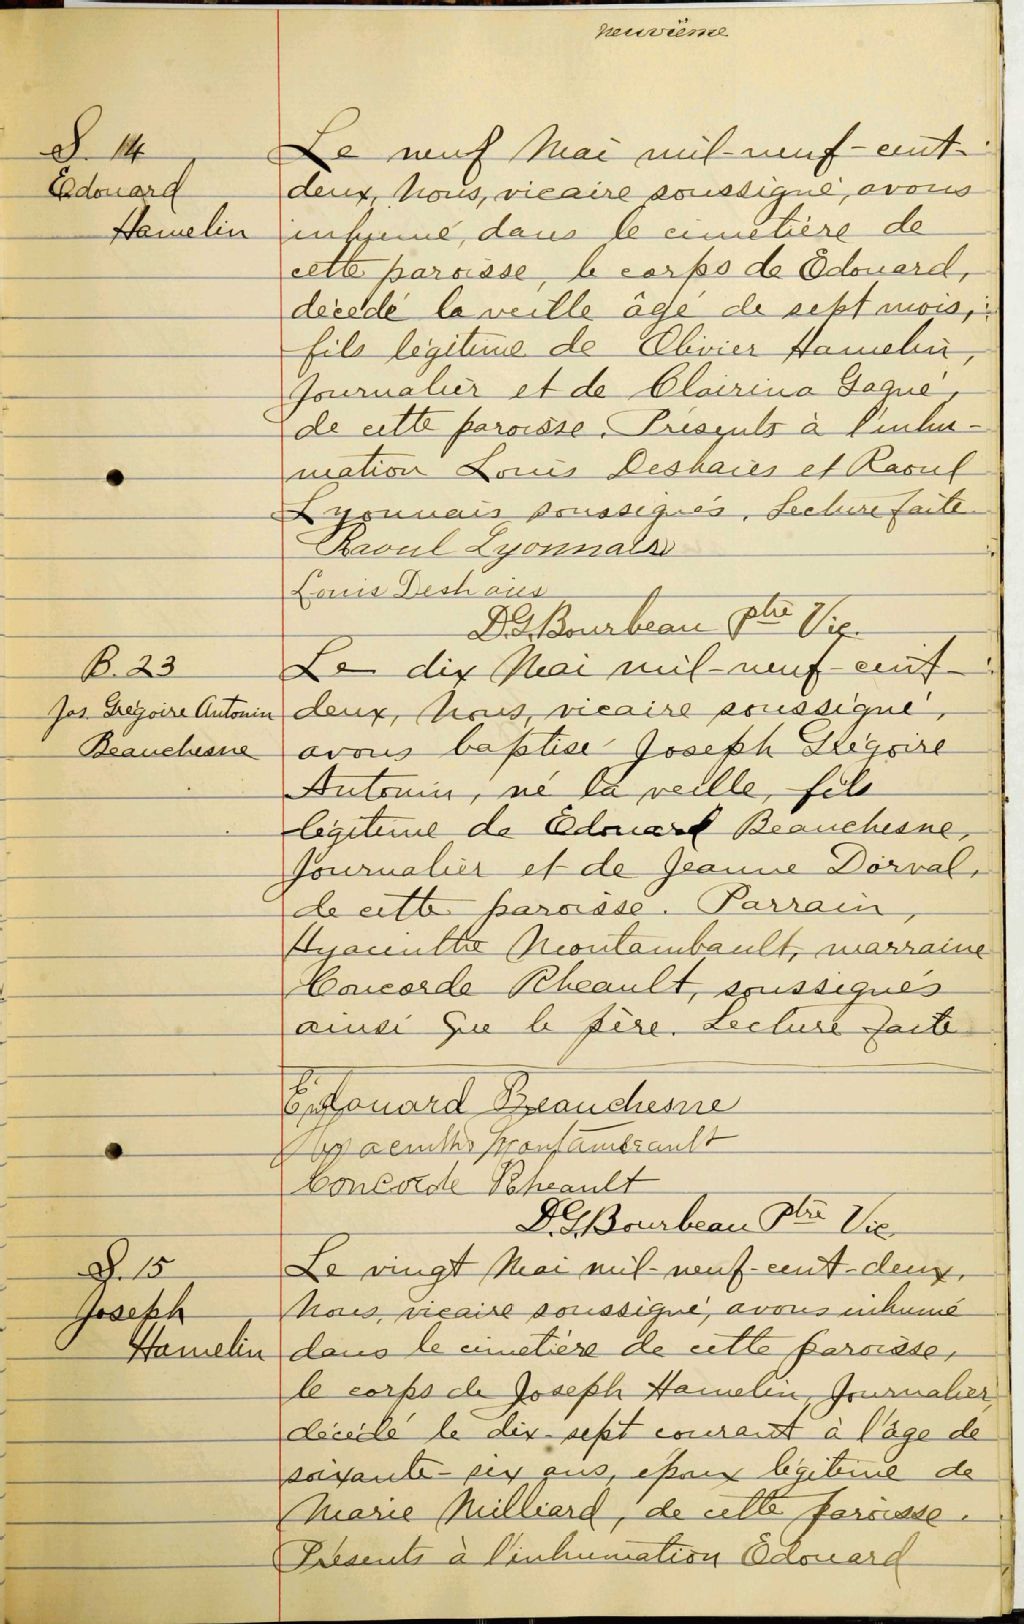 neuvième
S. 14
Edouard
Hamelin
Le neuf Mai mil-neuf-cent-
deux, Nous, vicaire soussigné, avons
inhumé, dans le cimetière de
cette paroisse, le corps de Edouard,
décédé la veille âgé de sept mois,
fils légitime de Olivier Hamelin,
Journalier et de Clairina Gagné,
de cette paroisse. Présents à l'inhu-
mation Louis Deshaies et Raoul
Lyonnais soussignés. Lecture faite
Raoul Lyonnais
Louis Deshaies
D.G. Bourbeau Ptre Vic.
B. 23
Jos. Grégoire Antonin
Beauchesne
Le dix Mai mil-neuf-cent-
deux, Nous, vicaire soussigné,
avons baptisé Joseph Grégoire
Antonin, né la veille, fils
légitime de Edouard Beauchesne,
Journalier et de Jeanne Dorval,
de cette paroisse. Parrain,
Hyacinthe Montambault, marraine
Concorde Rheault, soussignés
ainsi que le père. Lecture faite
Edouard Beauchesne
Hyacinthe Montambault
Concorde Rheault
D.G. Bourbeau Ptre Vic.
S. 15
Joseph
Hamelin
Le vingt Mai mil-neuf-cent-deux,
Nous, vicaire soussigné, avons inhumé
dans le cimetière de cette paroisse,
le corps de Joseph Hamelin, Journalier,
décédé le dix-sept courant à l'âge de
soixante-six ans, époux légitime de
Marie Milliard, de cette paroisse.
Présents à l'inhumation Edouard